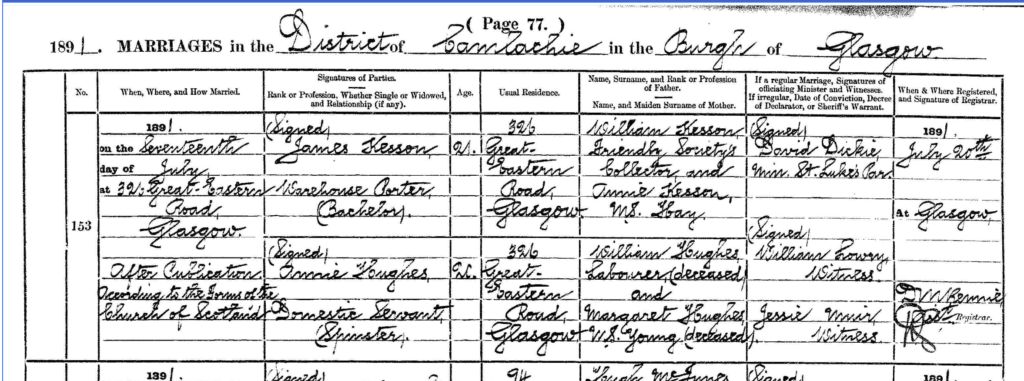 ( Page 77. )
1891. MARRIAGES in the District of Camlachie in the Burgh of Glasgow
No.
When, Where, and How Married.
Signatures of Parties.
Rank or Profession. Whether Single or Widowed,
and Relationship (if any).
Age.
Usual Residence.
Name, Surname, and Rank or Profession
of Father.
Name, and Maiden Surname of Mother.
If a regular Marriage, Signatures of
officiating Minister and Witnesses.
If irregular, Date of Conviction, Decree
of Declarator, or Sheriff's Warrant.
When & Where Registered,
and Signature of Registrar.
153
1891.
on the Seventeenth
day of July,
at 326 Great-Eastern
Road,
Glasgow.
After Publication
According to the Forms of the
Church of Scotland
(Signed)
James Kesson,
Warehouse Porter
(Bachelor).
(Signed)
Annie Hughes,
Domestic Servant,
(Spinster).
21.
326
Great-
Eastern
Road,
Glasgow.
326
Great-
Eastern
Road,
Glasgow
William Kesson,
Friendly Society's
Collector, and
Annie Kesson,
M.S. Hay
William Hughes,
Labourer, (deceased)
and
Margaret Hughes
M.S. Young (deceased)
(Signed)
David Dickie,
Min. St. Luke's Par.
(Signed)
William Lowry
Witness
Jessie Muir
Witness
1891.
July 20th
at Glasgow
Rennie
Asst. Registrar.
1891.
(Signed)
94
Hugh McInnes
(Signed)
1891.